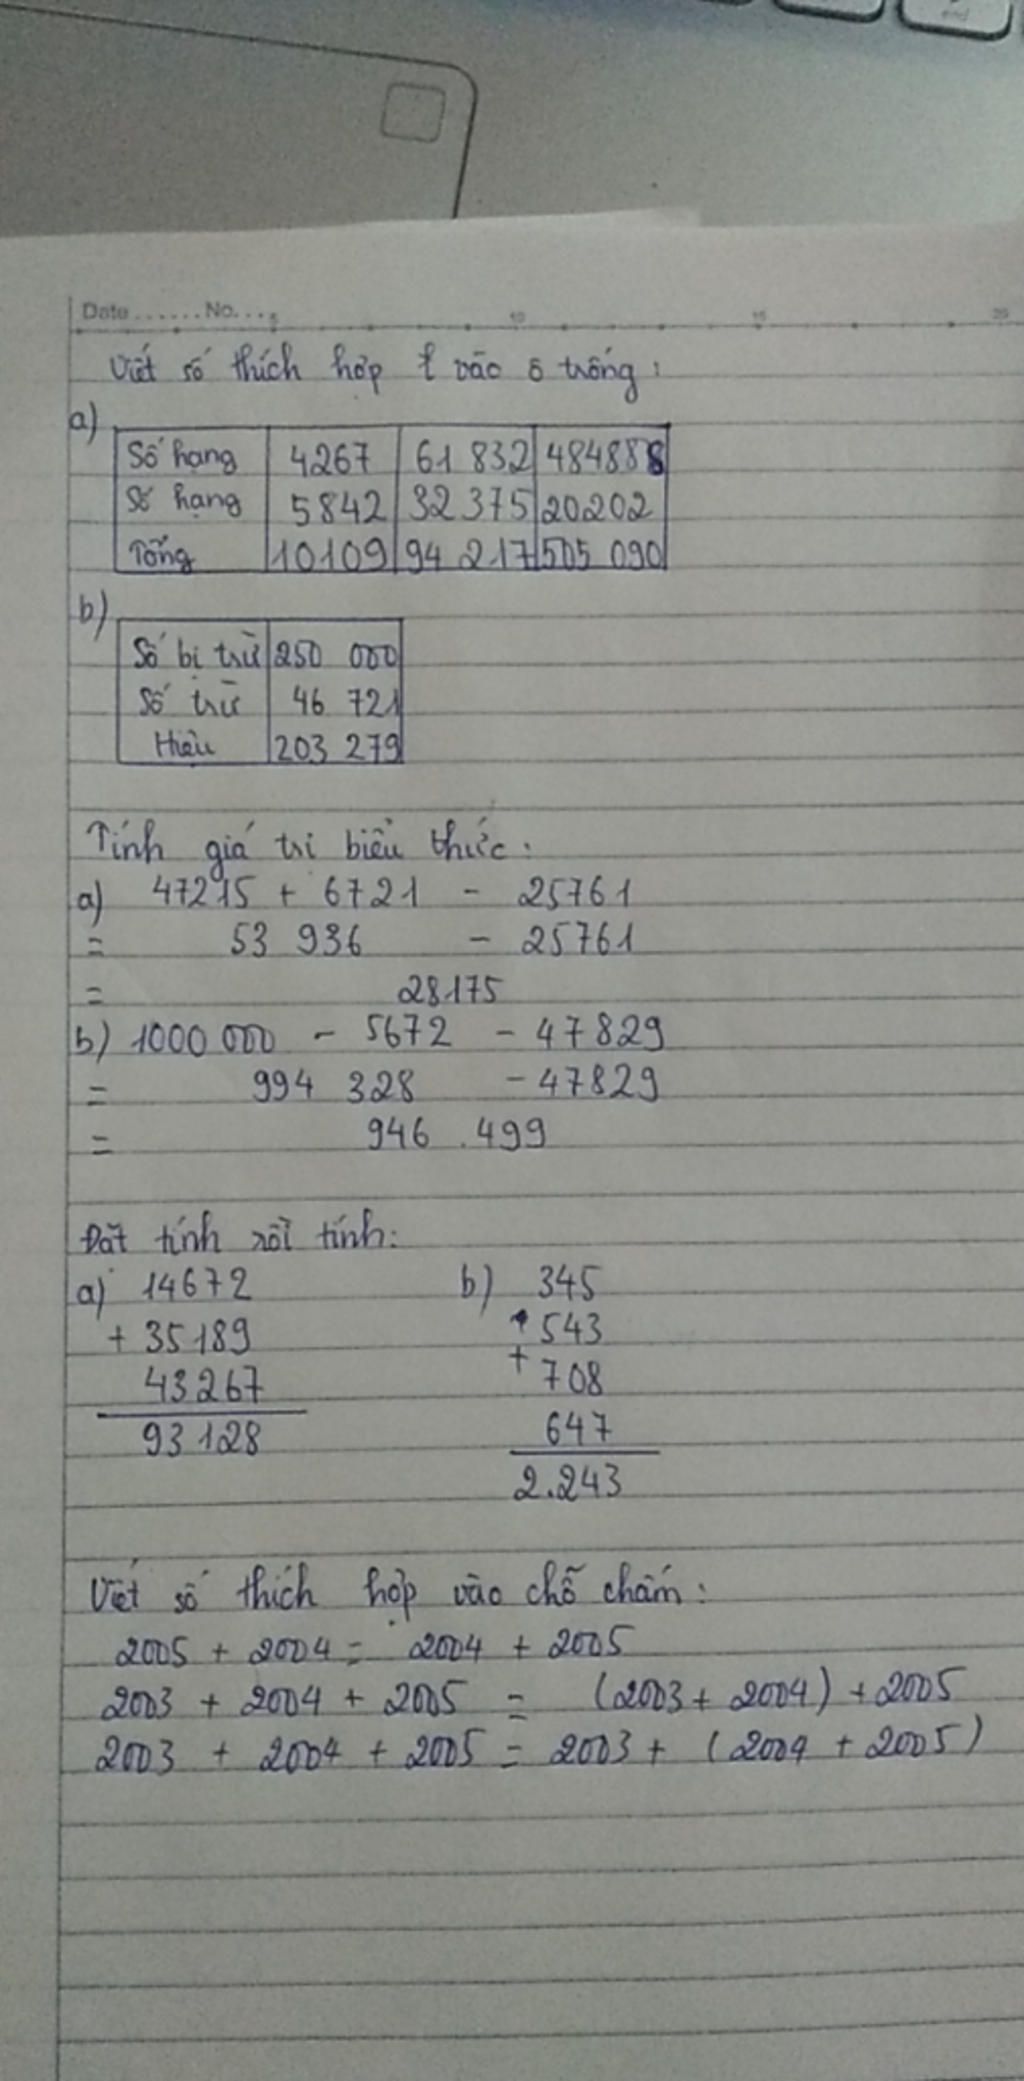 Date ...... No. ...
5 10 15 20
Viết số thích hợp t vào ô trống:
a)
Số hạng 4267 61 832 484888
Số hạng 5842 32 375 20202
Tổng 10109 94 217 505 090
b)
Số bị trừ 250 000
Số trừ 46 721
Hiệu 203 279
Tính giá trị biểu thức:
a) 47215 + 6721 - 25761
= 53 936 - 25761
= 28175
b) 1000 000 - 5672 - 47829
= 994 328 - 47829
= 946.499
Đặt tính rồi tính:
a) 14672 b) 345
+ 35189 543
43267 + 708
93128 647
2.243
Viết số thích hợp vào chỗ chấm:
2005 + 2004 = 2004 + 2005
2003 + 2004 + 2005 = (2003 + 2004) + 2005
2003 + 2004 + 2005 = 2003 + (2004 + 2005)